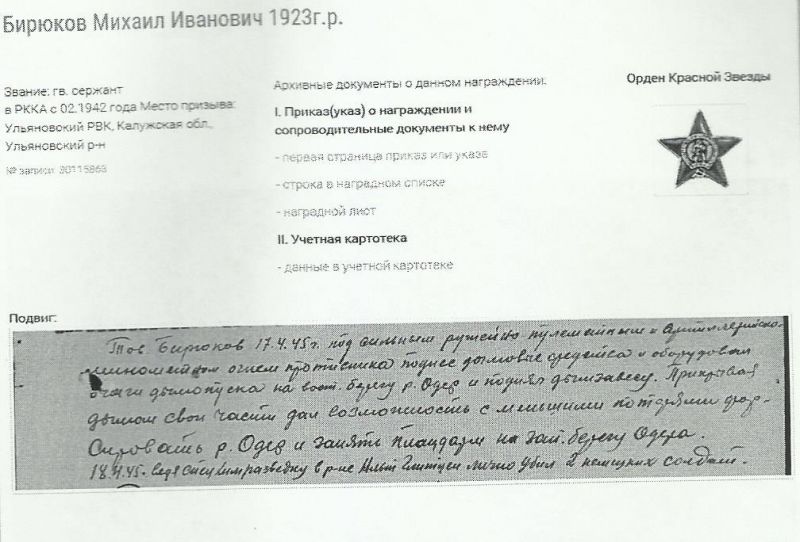 Бирюков Михаил Иванович 1923г.р.
Звание: гв. сержант
в РККА с 02.1942 года Место призыва:
Ульяновский РВК, Калужская обл.,
Ульяновский р-н
№ записи: 20115863
Архивные документы о данном награждении:
I. Приказ(указ) о награждении и
сопроводительные документы к нему
- первая страница приказ или указа
- строка в наградном списке
- наградной лист
II. Учетная картотека
- данные в учетной картотеке
Орден Красной Звезды
Подвиг:
Тов Бирюков 17.4.45г. под сильным ружейно пулеметным и Артиллерийско-
минометным огнем противника поднес дымовые средства и оборудовал
очаги дымопуска на вост. берегу р. Одер и поднял дымзавесу. Прикрывая
дымом свои части дал возможность с меньшими потерями фор-
сировать р. Одер и занять плацдарм на зап. берегу Одера.
18.4.45. ведя спецхимразведку в р-не лично убил 2 немецких солдат.